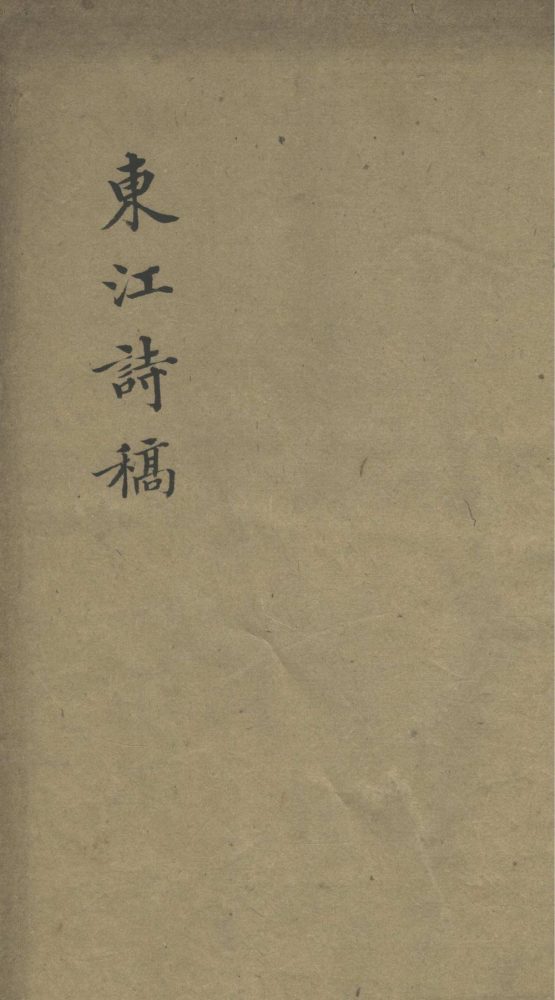 東江詩稿